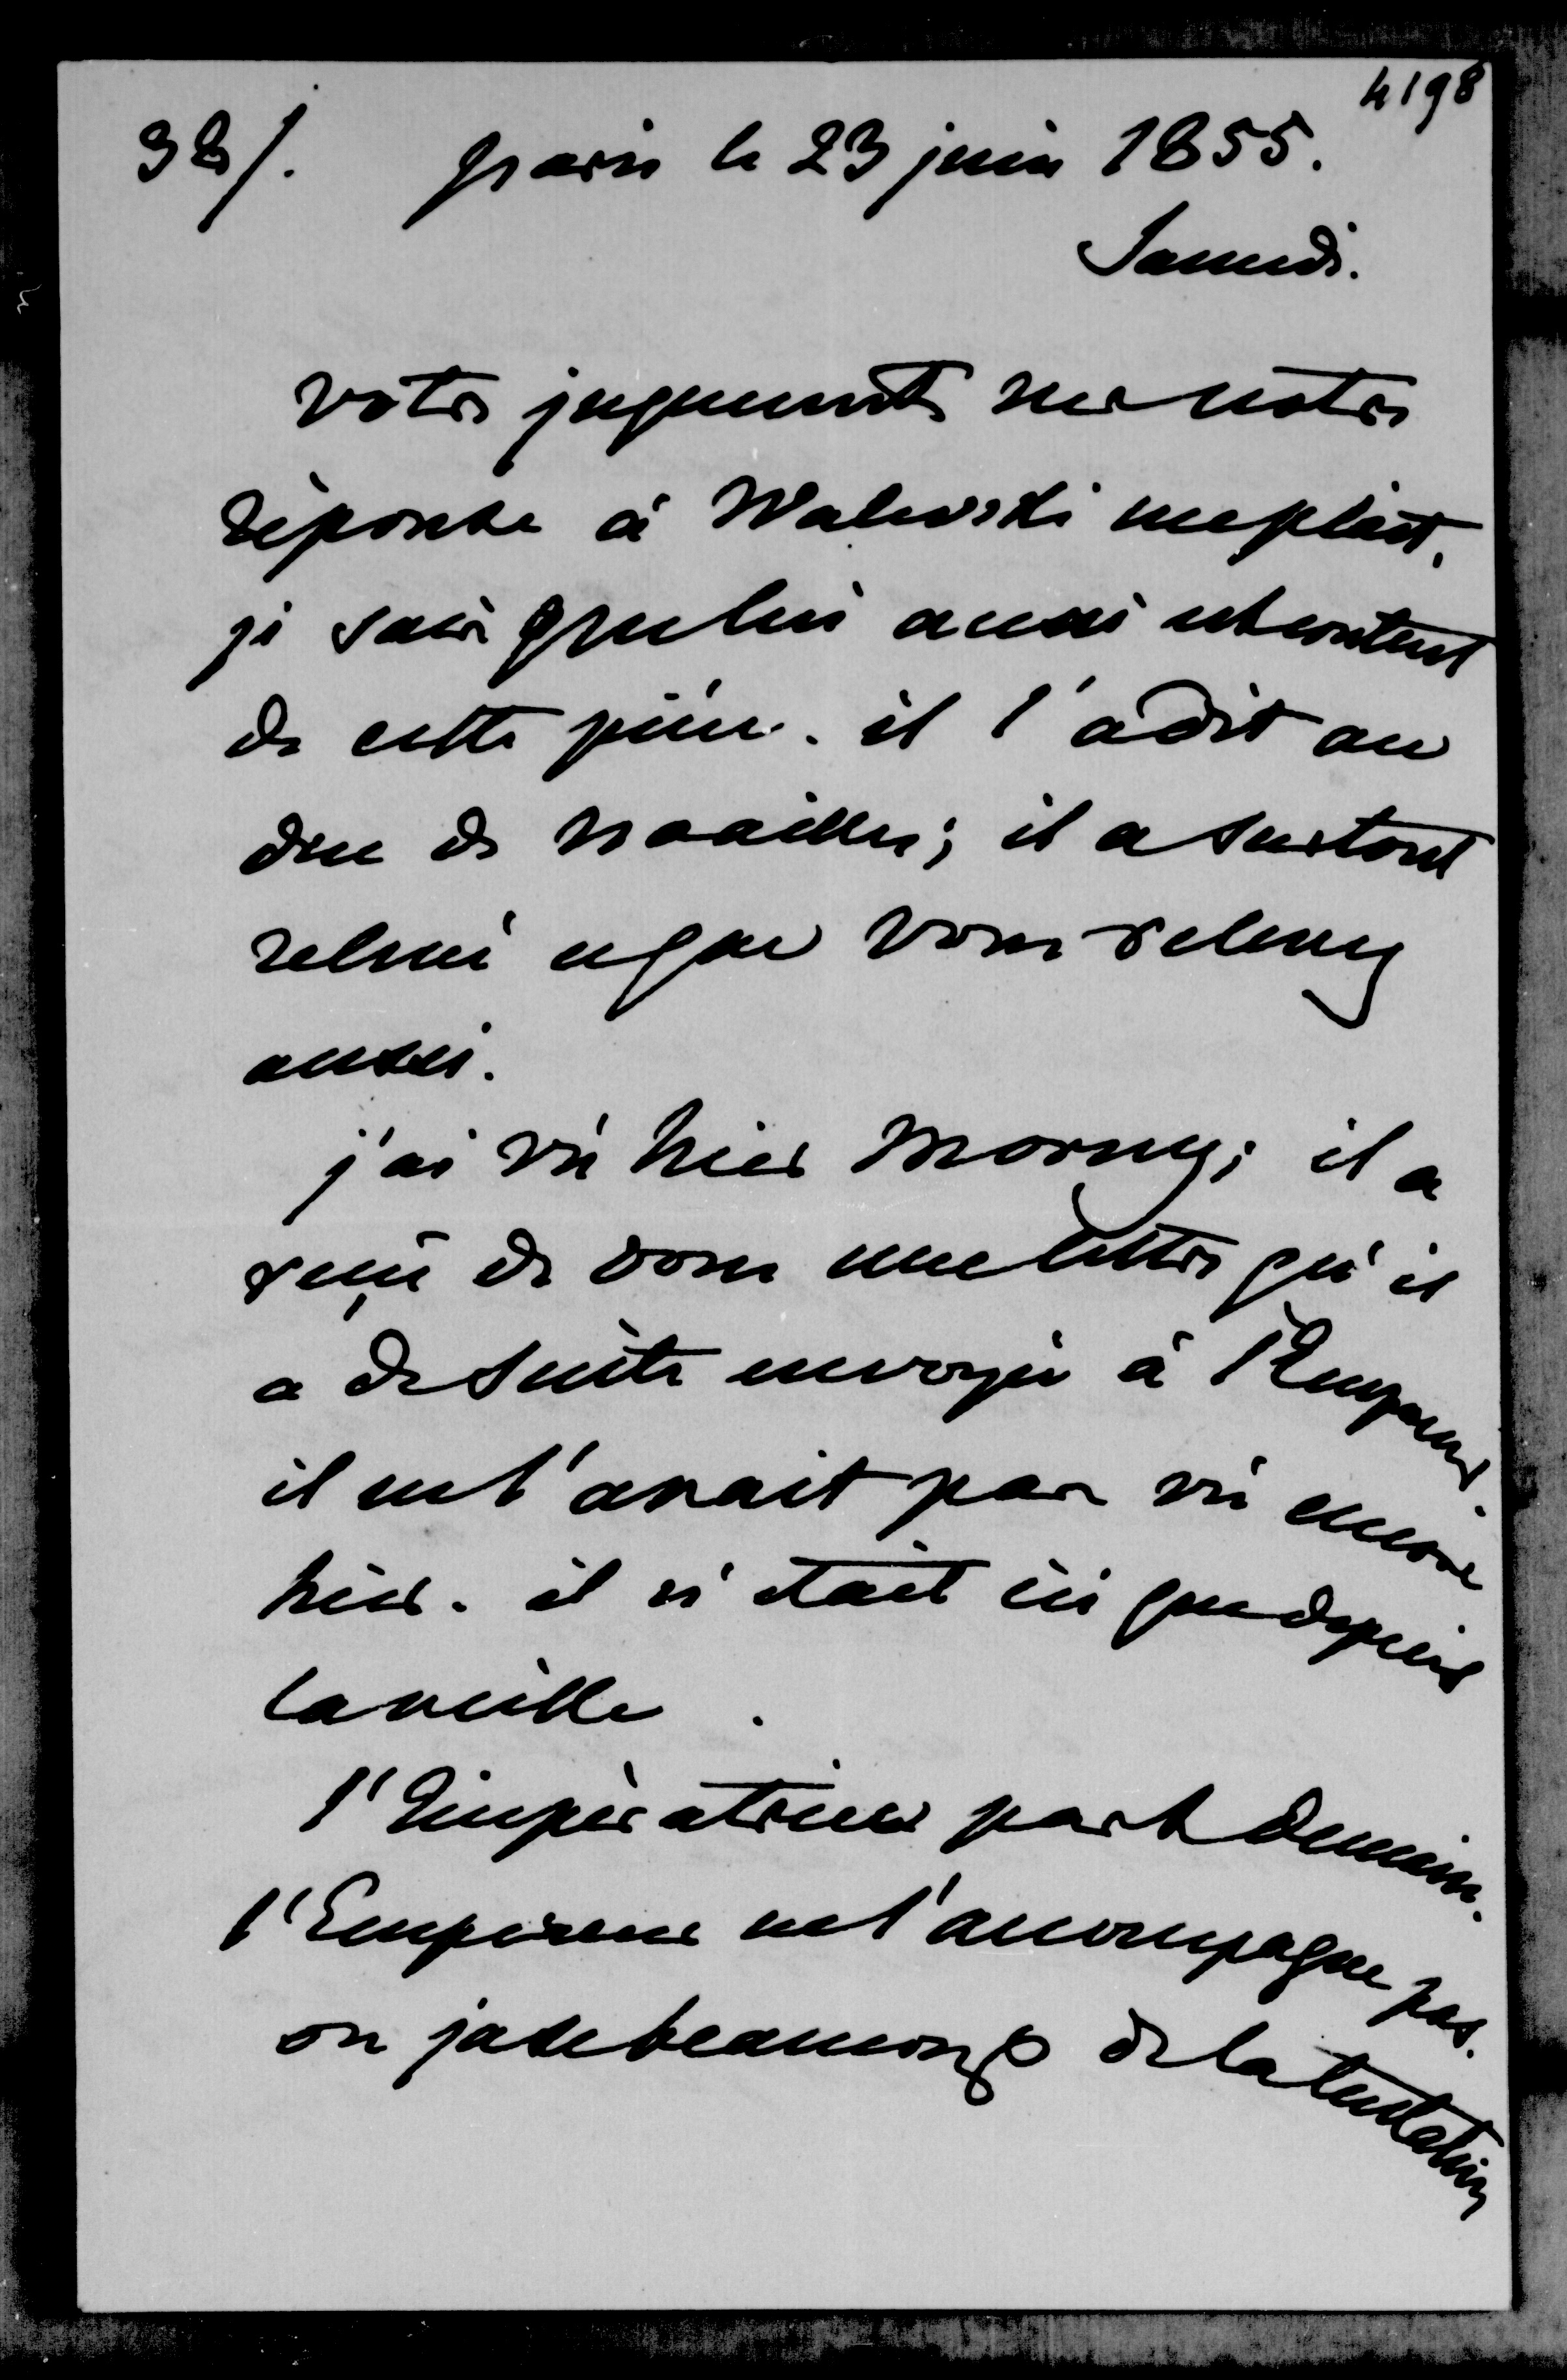 4198
38/. paris le 23 juin 1855.
Samedi.
votre jugement sur notre
réponse à Walewski me plait.
je sais que lui aussi est content
de cette pièce. il l'a dit au
duc de Noailles; il a surtout
relevé ce que vous relevez
aussi.
j'ai vû hier Morny; il a
reçu de vous une lettre qu'il
a de suite envoyée à l'Empereur.
il ne l'avait pas vû encore
hier. il n'était ici que depuis
la veille.
l'Impératrice part demain.
l'Empereur ne l'accompagne pas.
on jase beaucoup de la tentation